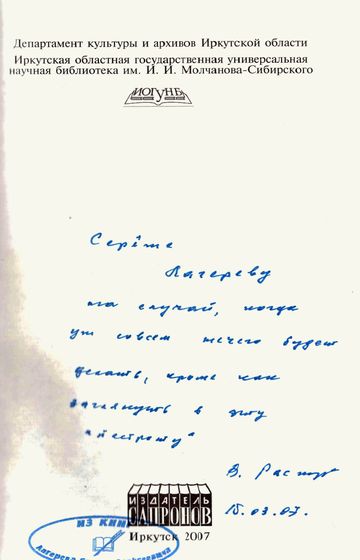 Департамент культуры и архивов Иркутской области
Иркутская областная государственная универсальная
научная библиотека им. И. И. Молчанова-Сибирского
ИОГУНБ
Серёже
Лагереву
на случай, когда
уж совсем нечего будет
делать, кроме как
заглянуть в эту
"пестроту"
В. Распут
15.03.07.
ИЗДАТЕЛЬ
САПРОНОВ
Иркутск 2007
ИЗ КНИГ